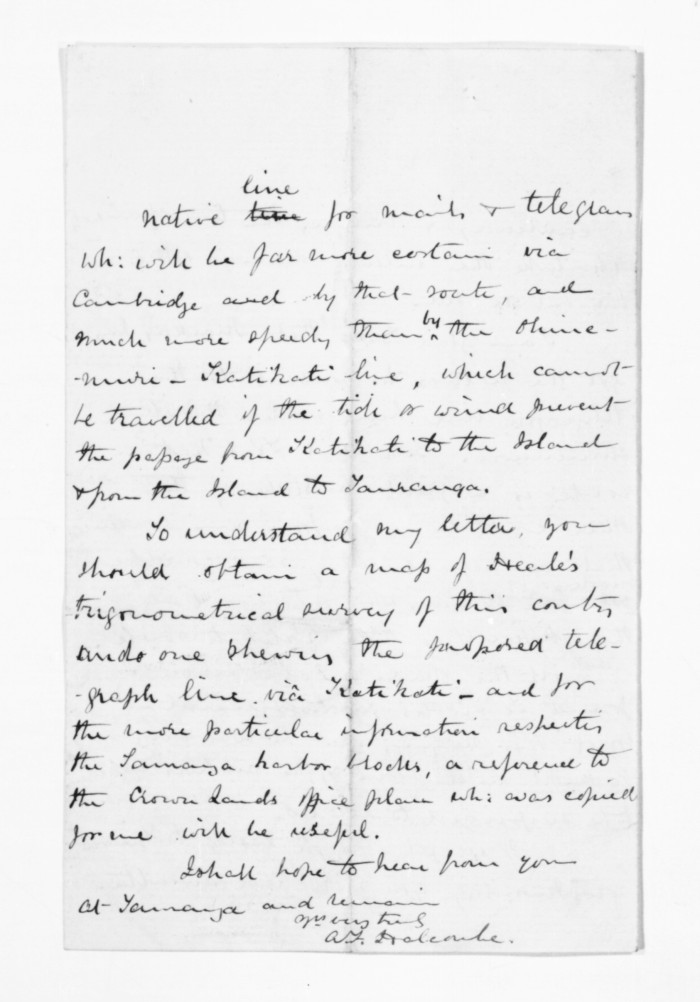 line
native line for mails & telegrams
wh: will be far more certain via
Cambridge and by that route, and
much more speedy than by the Ohine-
-muri - Katikati line, which cannot
be travelled if the tide or wind prevent
the passage from Katikati to the Island
& from the Island to Tauranga.
To understand my letter, you
should obtain a map of Heale's
trigonometrical survey of this country
and one shewing the proposed tele-
-graph line via Katikati - and for
the more particular information respecting
the Tauranga harbor blocks, a reference to
the Crown Lands office plan wh: was copied
for me will be useful.
I shall hope to hear from you
at Tauranga and remain
Yrs very truly
A.F. Halcombe.